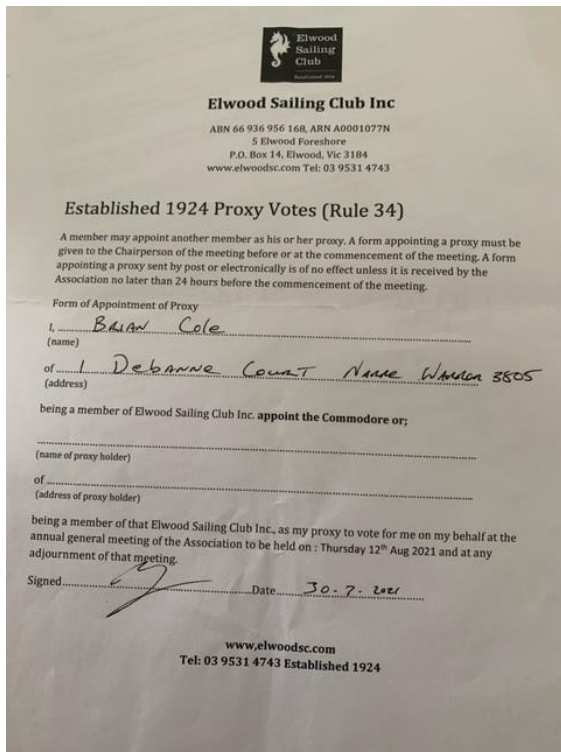 Elwood
Sailing
Club
Established 1924
Elwood Sailing Club Inc
ABN 66 936 956 168, ARN A0001077N
5 Elwood Foreshore
P.O. Box 14, Elwood, Vic 3184
www.elwoodsc.com Tel: 03 9531 4743
Established 1924 Proxy Votes (Rule 34)
A member may appoint another member as his or her proxy. A form appointing a proxy must be
given to the Chairperson of the meeting before or at the commencement of the meeting. A form
appointing a proxy sent by post or electronically is of no effect unless it is received by the
Association no later than 24 hours before the commencement of the meeting.
Form of Appointment of Proxy
I, BRIAN Cole
(name)
of 1 DebANNe CourT NARRe WARReN 3805
(address)
being a member of Elwood Sailing Club Inc. appoint the Commodore or;
(name of proxy holder)
of
(address of proxy holder)
being a member of that Elwood Sailing Club Inc., as my proxy to vote for me on my behalf at the
annual general meeting of the Association to be held on : Thursday 12th Aug 2021 and at any
adjournment of that meeting.
Signed Date 30-7-2021
www,elwoodsc.com
Tel: 03 9531 4743 Established 1924